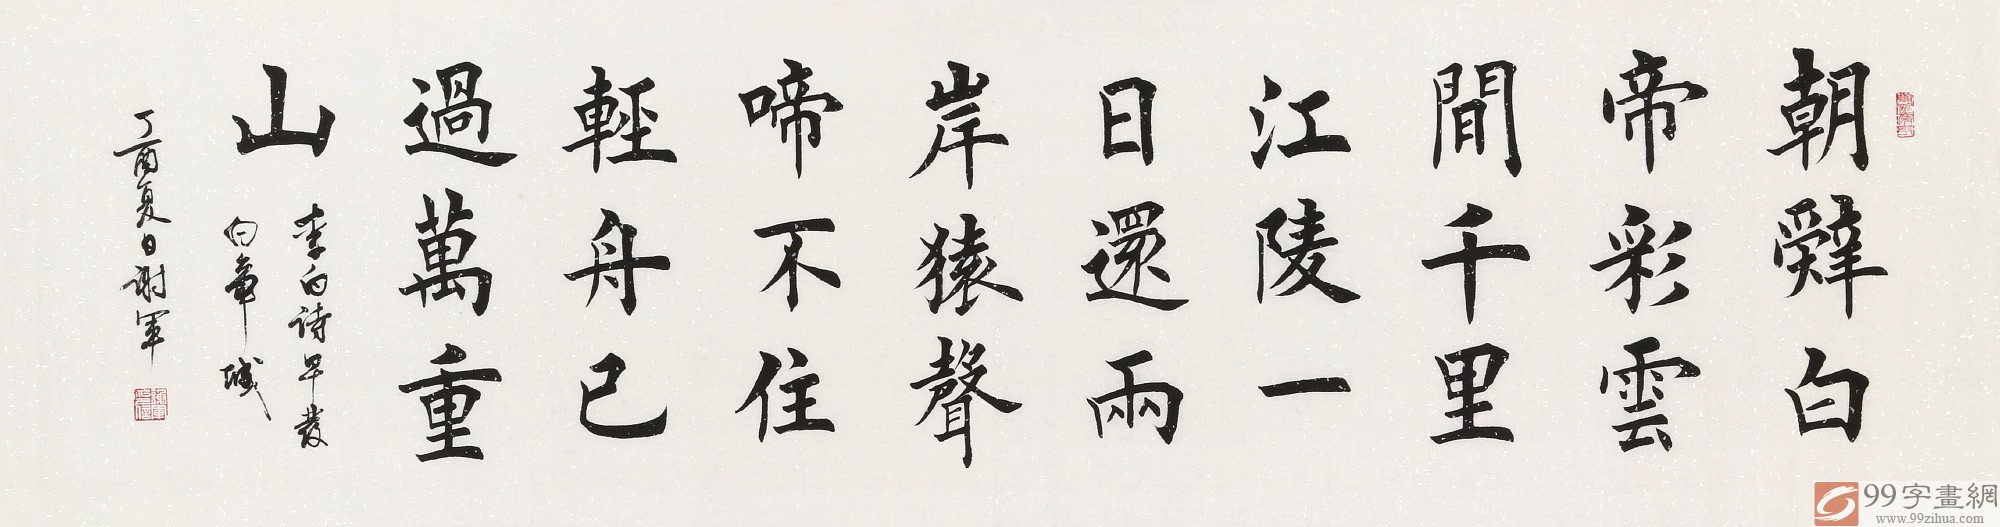 朝辤白
帝彩雲
間千里
江陵一
日還兩
岸猿聲
啼不住
輕舟已
過萬重
山
李白詩早發
白帝城
丁酉夏日謝軍
99字畫網
www.99zihua.com